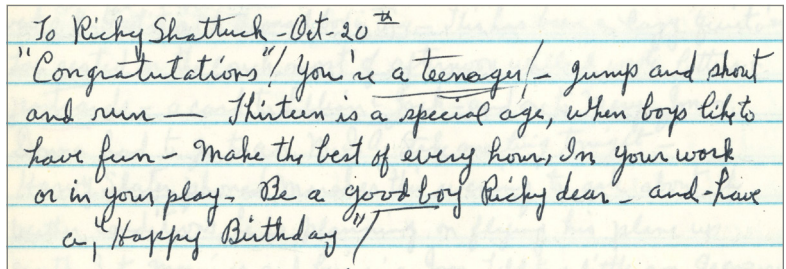 To Ricky Shattuck - Oct - 20th
"Congratutations"! You're a teenager! - Jump and shout
and run — Thirteen is a special age, when boys like to
have fun - Make the best of every hour, In your work
or in your play - Be a good boy Ricky dear - and - have
a, "Happy Birthday"!